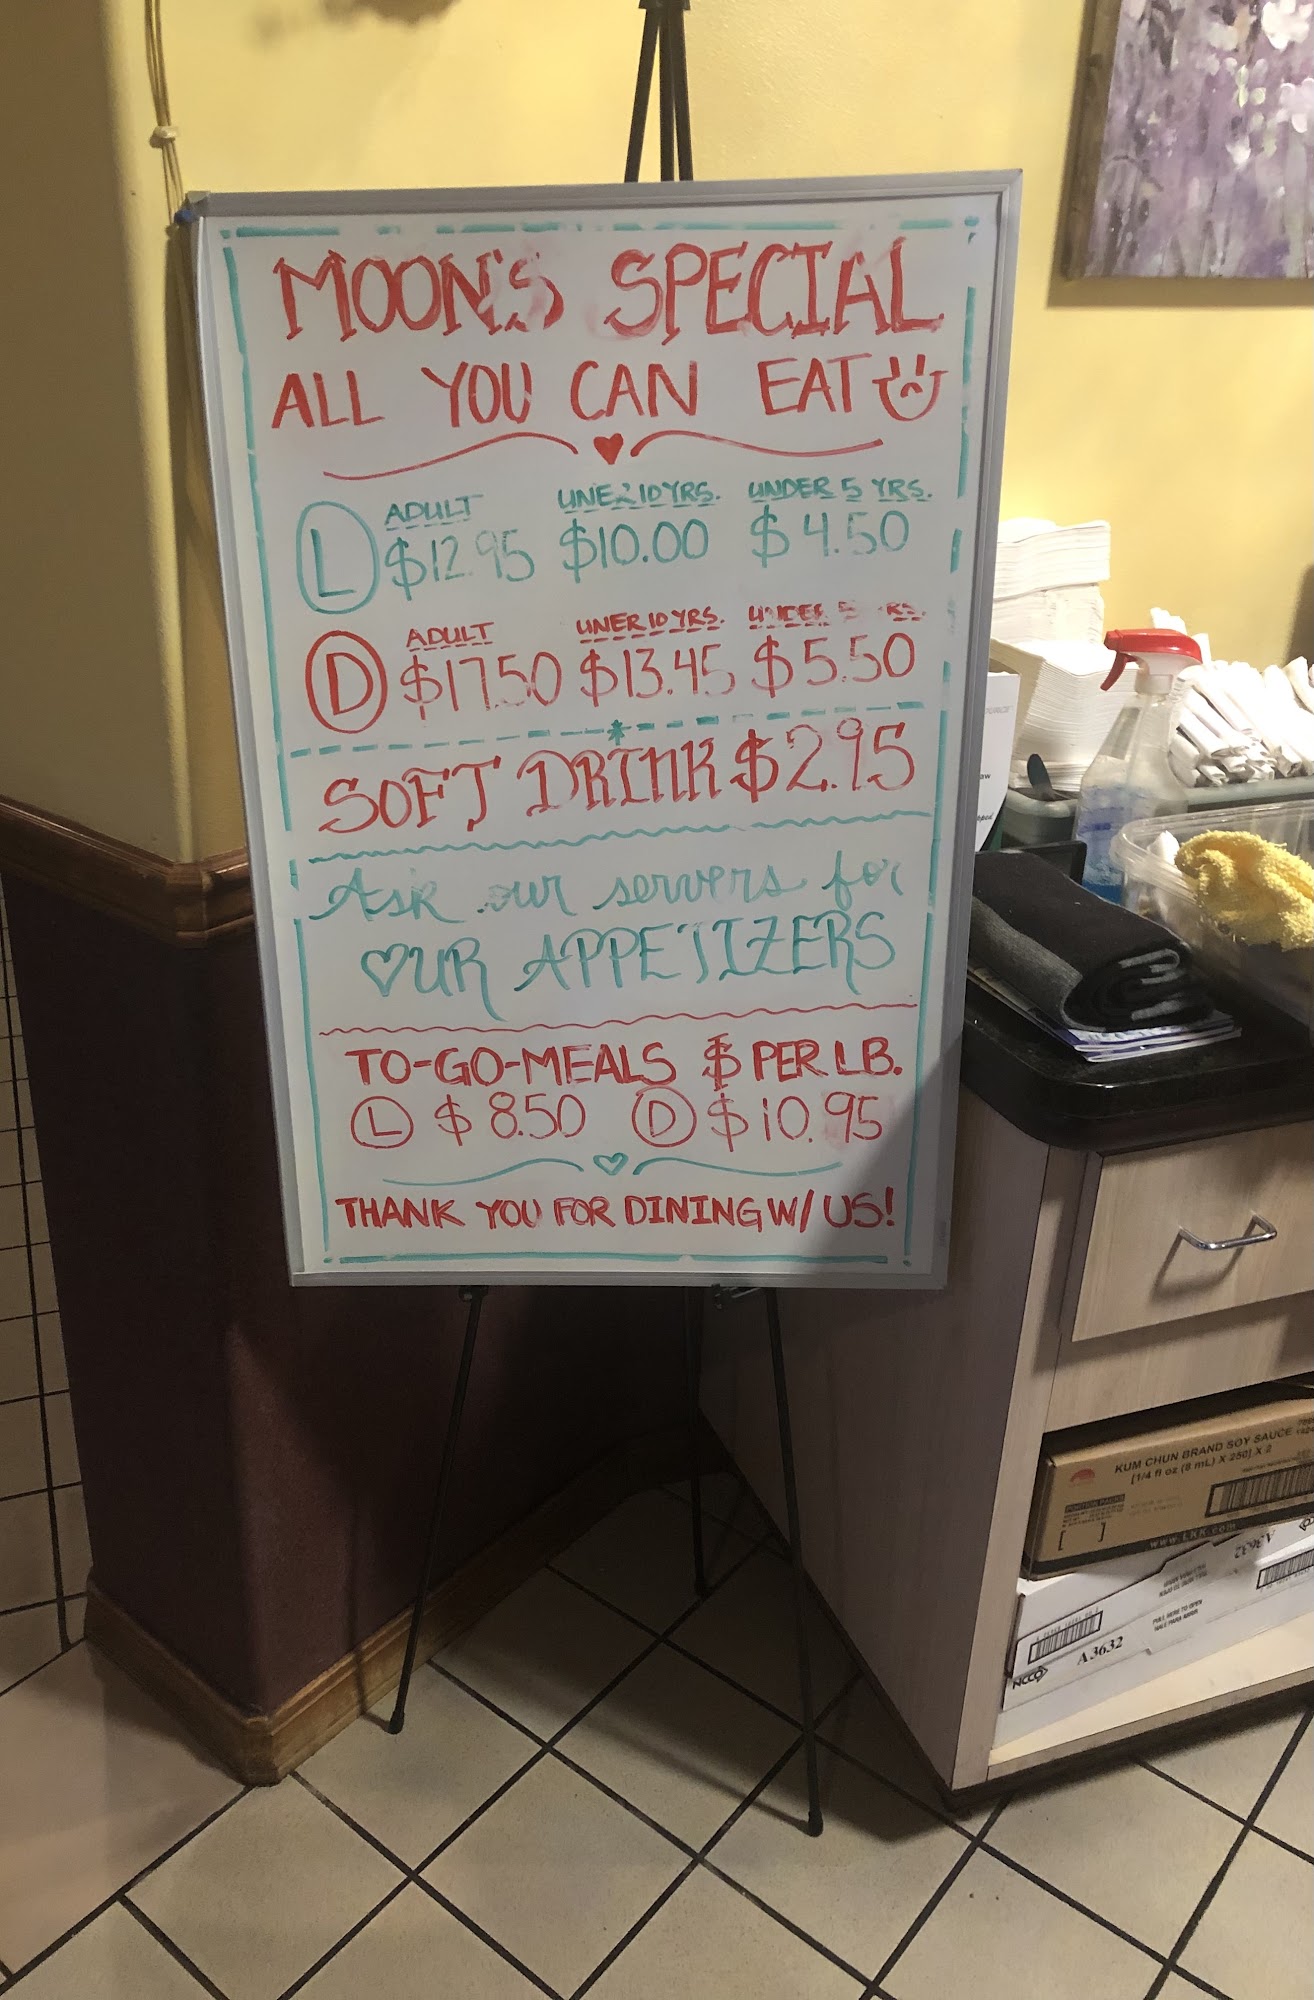 MOON'S SPECIAL
ALL YOU CAN EAT
L ADULT UNER 10 YRS. UNDER 5 YRS.
$12.95 $10.00 $4.50
D ADULT UNER 10 YRS. UNDER 5 YRS.
$17.50 $13.45 $5.50
SOFT DRINK $2.95
Ask our servers for
OUR APPETIZERS
TO-GO-MEALS $ PER LB.
L $8.50 D $10.95
THANK YOU FOR DINING W/ US!
KUM CHUN BRAND SOY SAUCE
[1/4 fl oz (8 mL) X 250] X 2
PORTION PACKS
www.LKK.com
A3632
PULL HERE TO OPEN
HALE PARA ABRIR
NCCO
A3632